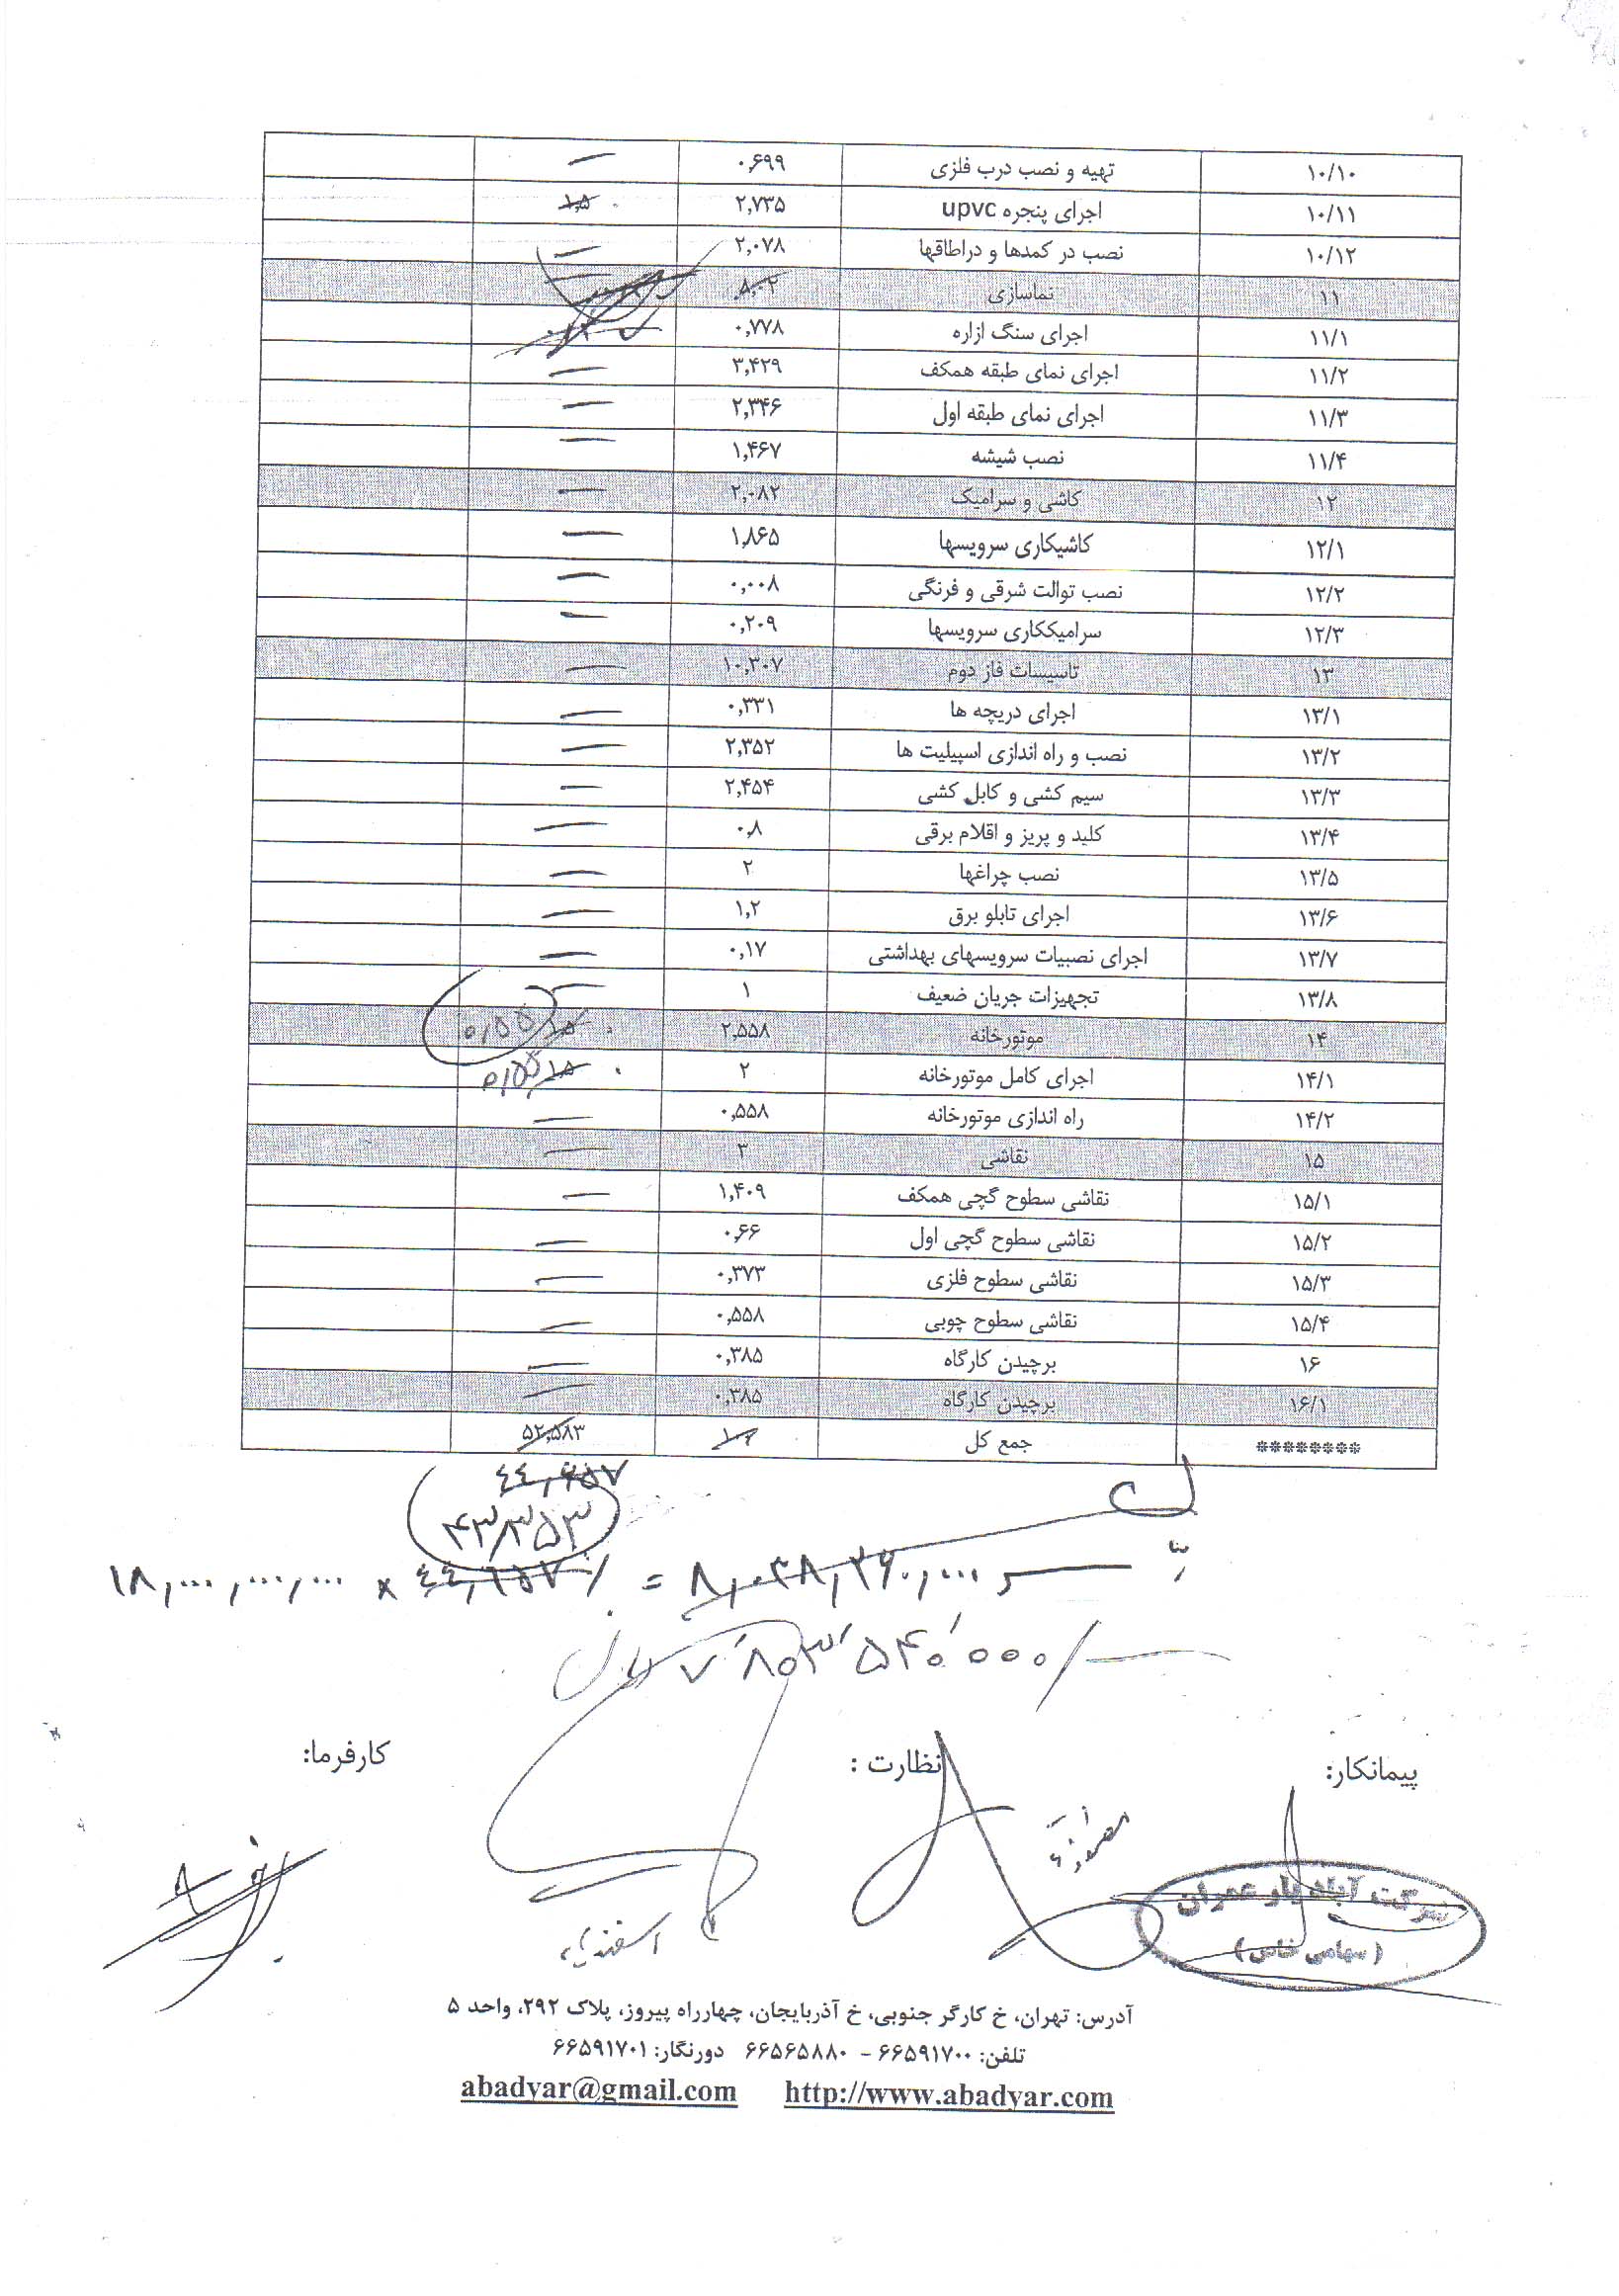 ۱۰/۱۰ تهیه و نصب درب فلزی ۰,۶۹۹ —
۱۰/۱۱ اجرای پنجره upvc ۲,۷۳۵ ۱,۵
۱۰/۱۲ نصب در کمدها و دراطاقها ۲,۰۷۸ —
۱۱ نماسازی ۸,۰۲
۱۱/۱ اجرای سنگ ازاره ۰,۷۷۸
۱۱/۲ اجرای نمای طبقه همکف ۳,۴۲۹ —
۱۱/۳ اجرای نمای طبقه اول ۲,۳۴۶ —
۱۱/۴ نصب شیشه ۱,۴۶۷ —
۱۲ کاشی و سرامیک ۲,۰۸۲ —
۱۲/۱ کاشیکاری سرویسها ۱,۸۶۵ —
۱۲/۲ نصب توالت شرقی و فرنگی ۰,۰۰۸ —
۱۲/۳ سرامیککاری سرویسها ۰,۲۰۹ —
۱۳ تاسیسات فاز دوم ۱۰,۳۰۷ —
۱۳/۱ اجرای دریچه ها ۰,۳۳۱ —
۱۳/۲ نصب و راه اندازی اسپیلیت ها ۲,۳۵۲ —
۱۳/۳ سیم کشی و کابل کشی ۲,۴۵۴ —
۱۳/۴ کلید و پریز و اقلام برقی ۰,۸ —
۱۳/۵ نصب چراغها ۲ —
۱۳/۶ اجرای تابلو برق ۱,۲ —
۱۳/۷ اجرای نصبیات سرویسهای بهداشتی ۰,۱۷ —
۱۳/۸ تجهیزات جریان ضعیف ۱ —
۱۴ موتورخانه ۲,۵۵۸
۱۴/۱ اجرای کامل موتورخانه ۲
۱۴/۲ راه اندازی موتورخانه ۰,۵۵۸ —
۱۵ نقاشی ۳ —
۱۵/۱ نقاشی سطوح گچی همکف ۱,۴۰۹ —
۱۵/۲ نقاشی سطوح گچی اول ۰,۶۶ —
۱۵/۳ نقاشی سطوح فلزی ۰,۳۷۳ —
۱۵/۴ نقاشی سطوح چوبی ۰,۵۵۸ —
۱۶ برچیدن کارگاه ۰,۳۸۵ —
۱۶/۱ برچیدن کارگاه ۰,۳۸۵ —
******** جمع کل ۵۲,۵۸۳
٤٤,٦٥٧
۴۳/۳۵۳
۱۸,۰۰۰,۰۰۰,۰۰۰ × ٤٤,٦٥٧٪ = ۸,۰۳۸,۲۶۰,۰۰۰
۷٬۸۰۳٬۵۴۰٬۰۰۰/—
پیمانکار: نظارت : کارفرما:
اسفندیاری
شرکت آباد یار عمران
(سهامی خاص)
آدرس: تهران، خ کارگر جنوبی، خ آذربایجان، چهارراه پیروز، پلاک ۲۹۲، واحد ۵
تلفن: ۶۶۵۹۱۷۰۰ - ۶۶۵۶۵۸۸۰ دورنگار: ۶۶۵۹۱۷۰۱
abadyar@gmail.com http://www.abadyar.com